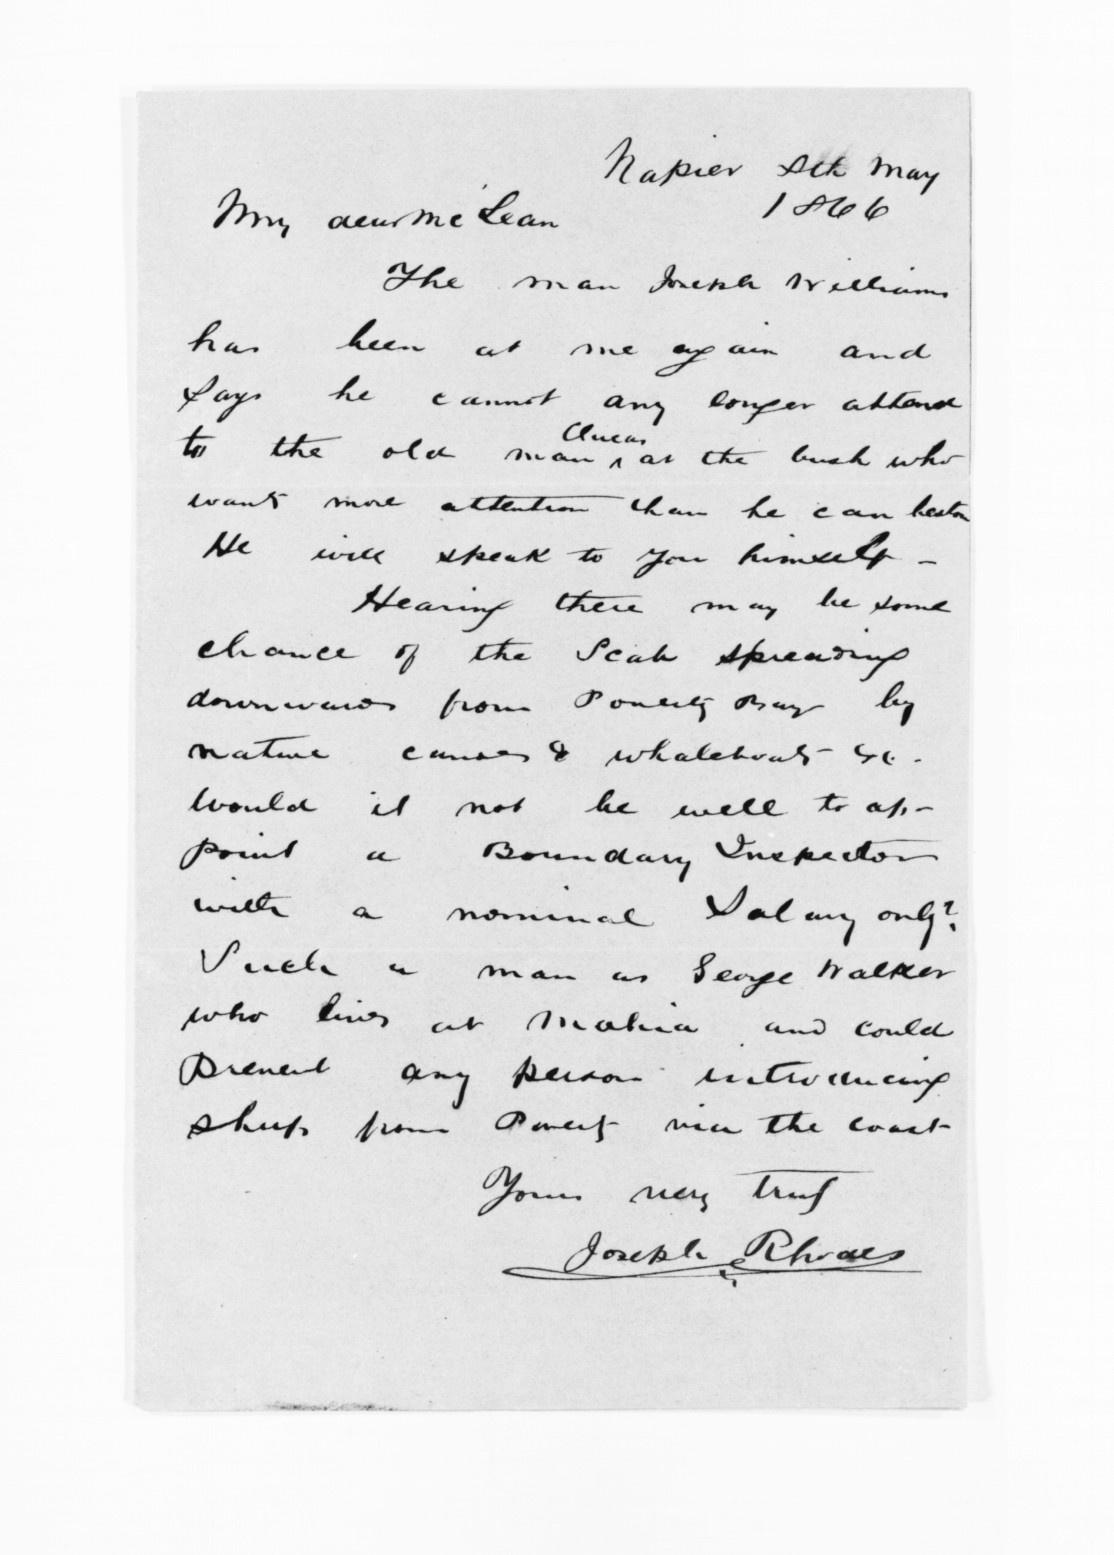 Napier 8th May
1866
My dear McLean
The man Joseph Williams
has been at me again and
says he cannot any longer attend
to the old man at the bush who
wants more attention than he can bestow
He will speak to you himself -
Hearing there may be some
chance of the Scab spreading
downwards from Poverty Bay by
native canoes & whaleboats &c.
would it not be well to ap-
point a Boundary Inspector
with a nominal Salary only?
Such a man as George Walker
who lives at Mahia and could
prevent any person introducing
sheep from Poverty via the coast
Yours very truly
Joseph Rhodes